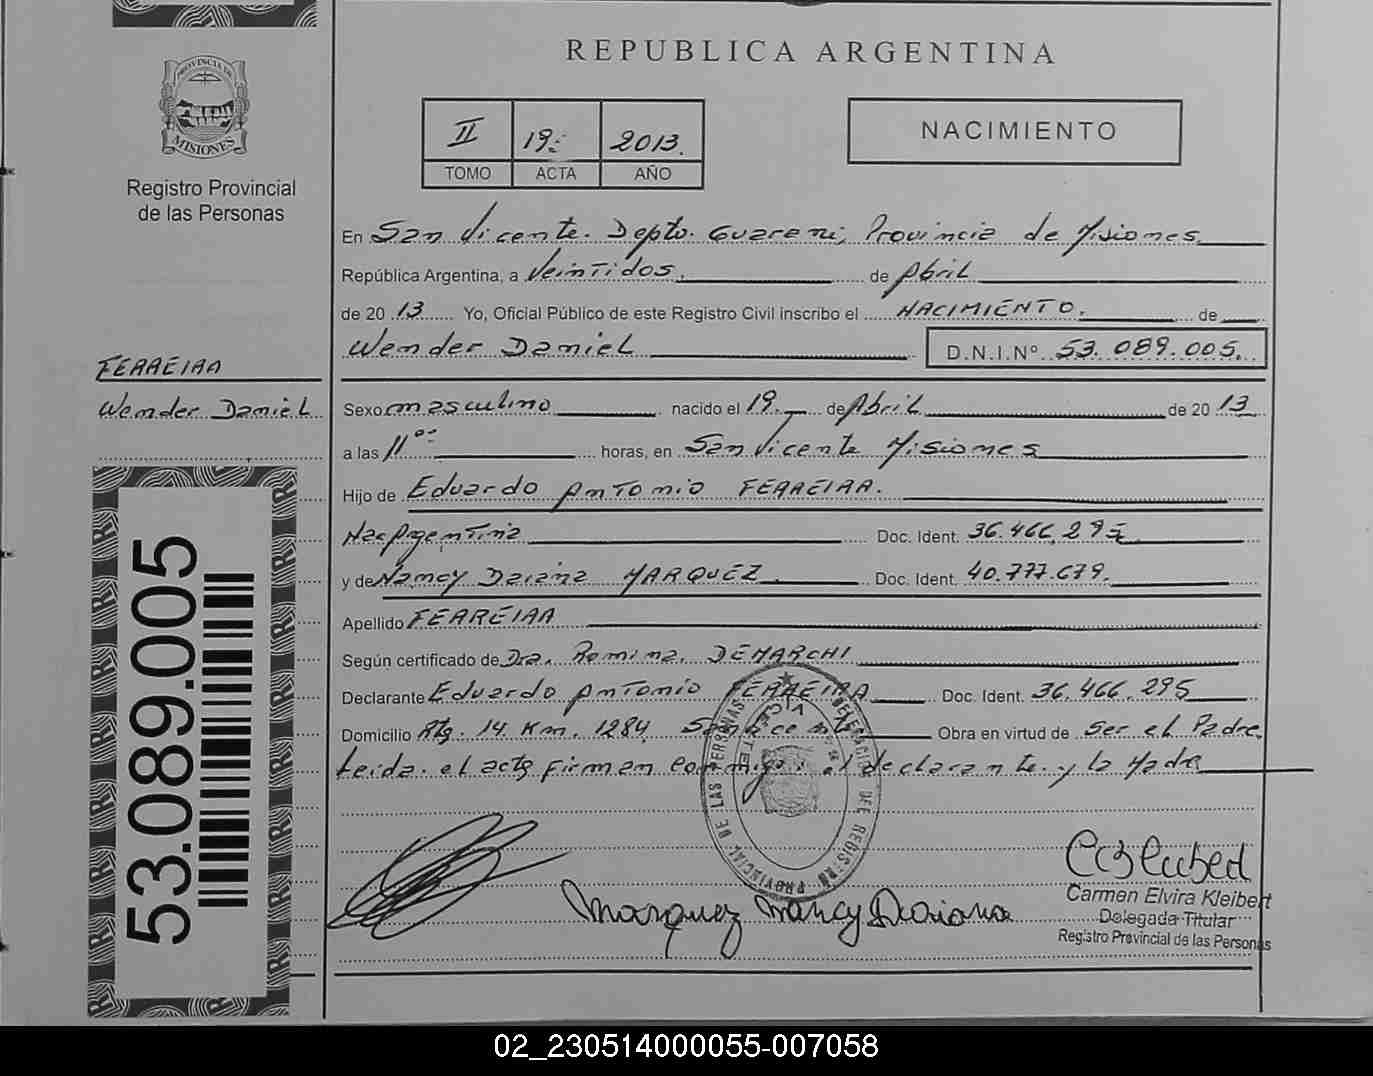 REPUBLICA ARGENTINA
PROVINCIA DE
MISIONES
Registro Provincial
de las Personas
II 19 2013.
TOMO ACTA AÑO
NACIMIENTO
En San Vicente. Depto. Guarani, Provincia de Misiones
República Argentina, a Veintidos. de Abril
de 20 13 Yo, Oficial Público de este Registro Civil inscribo el NACIMIENTO. de
Wender Daniel D.N.I.Nº 53.089.005.
FERREIRA
Wender Daniel
Sexo masculino nacido el 19. de Abril de 20 13
a las 11 ºº horas, en San Vicente Misiones
Hijo de Eduardo Antonio FERREIRA.
Nac Argentina Doc. Ident. 36.466.295
y de Nancy Daiana MARQUEZ Doc. Ident. 40.777.679.
Apellido FERREIRA
Según certificado de Dra. Romina. DEMARCHI
Declarante Eduardo Antonio FERREIRA Doc. Ident. 36.466.295
Domicilio Rta. 14 Km. 1284 San Vicente Obra en virtud de Ser el Padre
Leida el acta firman conmigo, el declarante y la Madre
53.089.005
DELEGACION DEL REGISTRO PROVINCIAL DE LAS PERSONAS
Marquez Nancy Daiana
Carmen Elvira Kleibert
Delegada Titular
Registro Provincial de las Personas
02_230514000055-007058